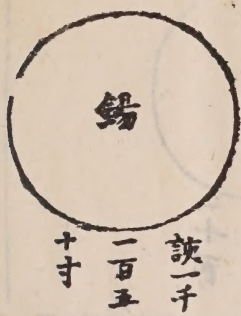 錫
該一千
一百五
十寸